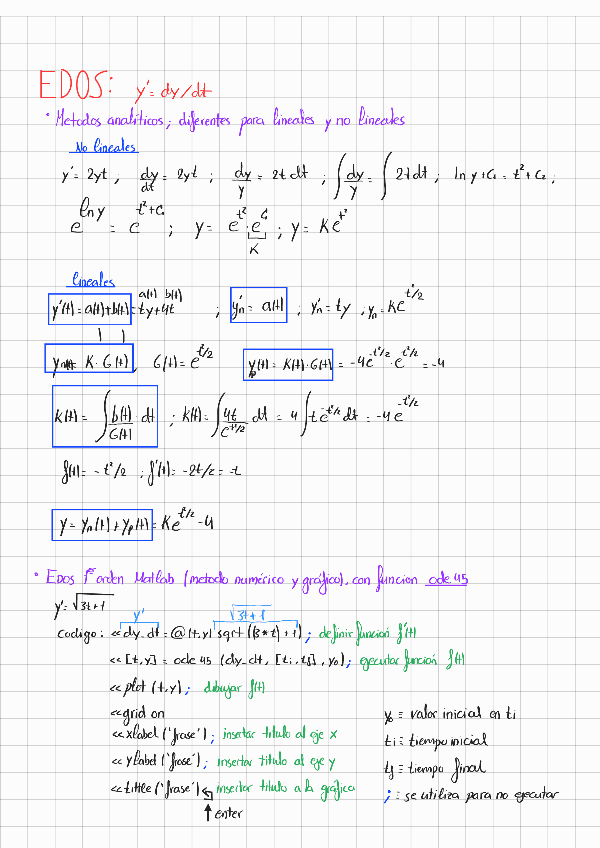 EDOS: y' = dy/dt
• Metodos analíticos; diferentes para lineales y no lineales
No lineales
y' = 2yt , dy/dt = 2yt ; dy/y = 2t dt ; ∫ dy/y = ∫ 2t dt ; ln y + C₁ = t² + C₂ ;
e^(ln y) = e^(t²+C₁) ; y = e^(t²) · e^(C₁) ; y = K e^(t²)
K
lineales
a(t) b(t)
y'(t) = a(t) + b(t) = ty + 4t ; y'n = a(t) ; y'n = ty , yn = K e^(t²/2)
yn(t) = K · G(t) , G(t) = e^(t²/2) yp(t) = K(t) · G(t) = -4e^(-t²/2) · e^(t²/2) = -4
K(t) = ∫ b(t)/G(t) · dt ; k(t) = ∫ 4t/e^(t²/2) dt = 4 ∫ t e^(-t²/2) dt = -4 e^(-t²/2)
f(t) = -t²/2 ; f'(t) = -2t/2 = -t
y = yn(t) + yp(t) = K e^(t²/2) - 4
• EDOS 1er orden Matlab (metodo numérico y gráfico), con funcion ode 45
y' = √3t+1
y' √3t+1
codigo: << dy_dt = @ (t,y) sqrt ((3*t)+1) ; definir función f'(t)
<< [t,y] = ode 45 (dy_dt, [ti, tf], y₀) ; ejecutar función f(t)
<< plot (t,y) ; dibujar f(t)
<< grid on
<< xlabel ('frase') ; insertar titulo al eje x
<< ylabel ('frase') ; insertar titulo al eje y
<< tittle ('frase') insertar titulo a la gráfica
↑ enter
y₀ ≡ valor inicial en ti
ti ≡ tiempo inicial
tf ≡ tiempo final
; ≡ se utiliza para no ejecutar